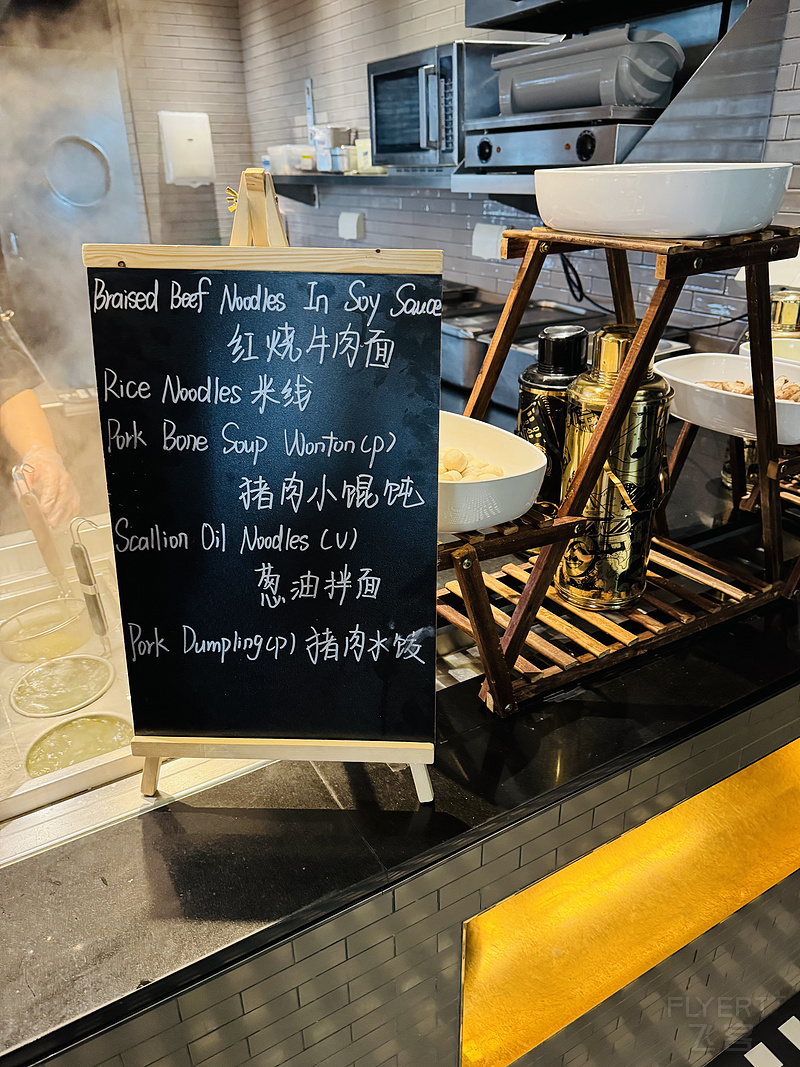 Braised Beef Noodles In Soy Sauce
红烧牛肉面
Rice Noodles 米线
Pork Bone Soup Wonton(p)
猪肉小馄饨
Scallion Oil Noodles (V)
葱油拌面
Pork Dumpling(p) 猪肉水饺
FLYERT
飞客